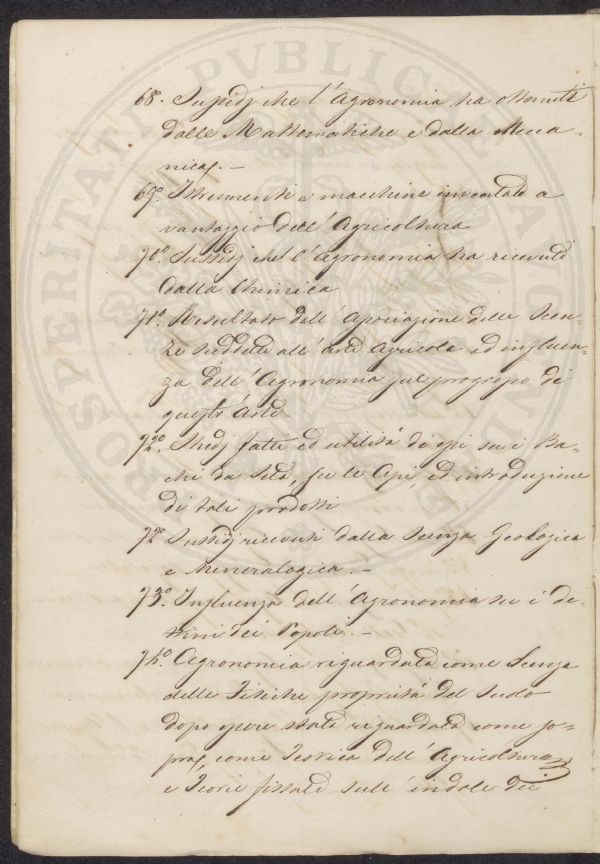 68°. Sussidj che l'Agronomia ha ottenuti
dalle Mattematiche e dalla Mecca-
nica. -
69°. Istrumenti e macchine inventate a
vantaggio dell'Agricoltura
70° Sussidj che l'Agronomia ha ricevuti
dalla Chimica
71° Resultato dell'Associazione delle Scen-
ze suddette all'arte Agricola ed influen-
za dell'Agronomia sul progresso di
quest'Arte
72°. Studj fatti ed utilità di essi su i Ba-
chi da Seta, su le Api ed introduzione
di tali prodotti
72° Sussidj ricevuti dalla Scenza Geologica
e Mineralogica. -
73°. Influenza dell'Agronomia su i de-
stini dei Popoli. -
74°. Agronomia riguardata come Scenza
delle Fisiche proprietà del Suolo
dopo essere stata riguardata come so-
pra, come Teorica dell'Agricoltura
e Teorie fissate sull'indole dei
PROSPERITATI PUBLICAE AUGENDAE